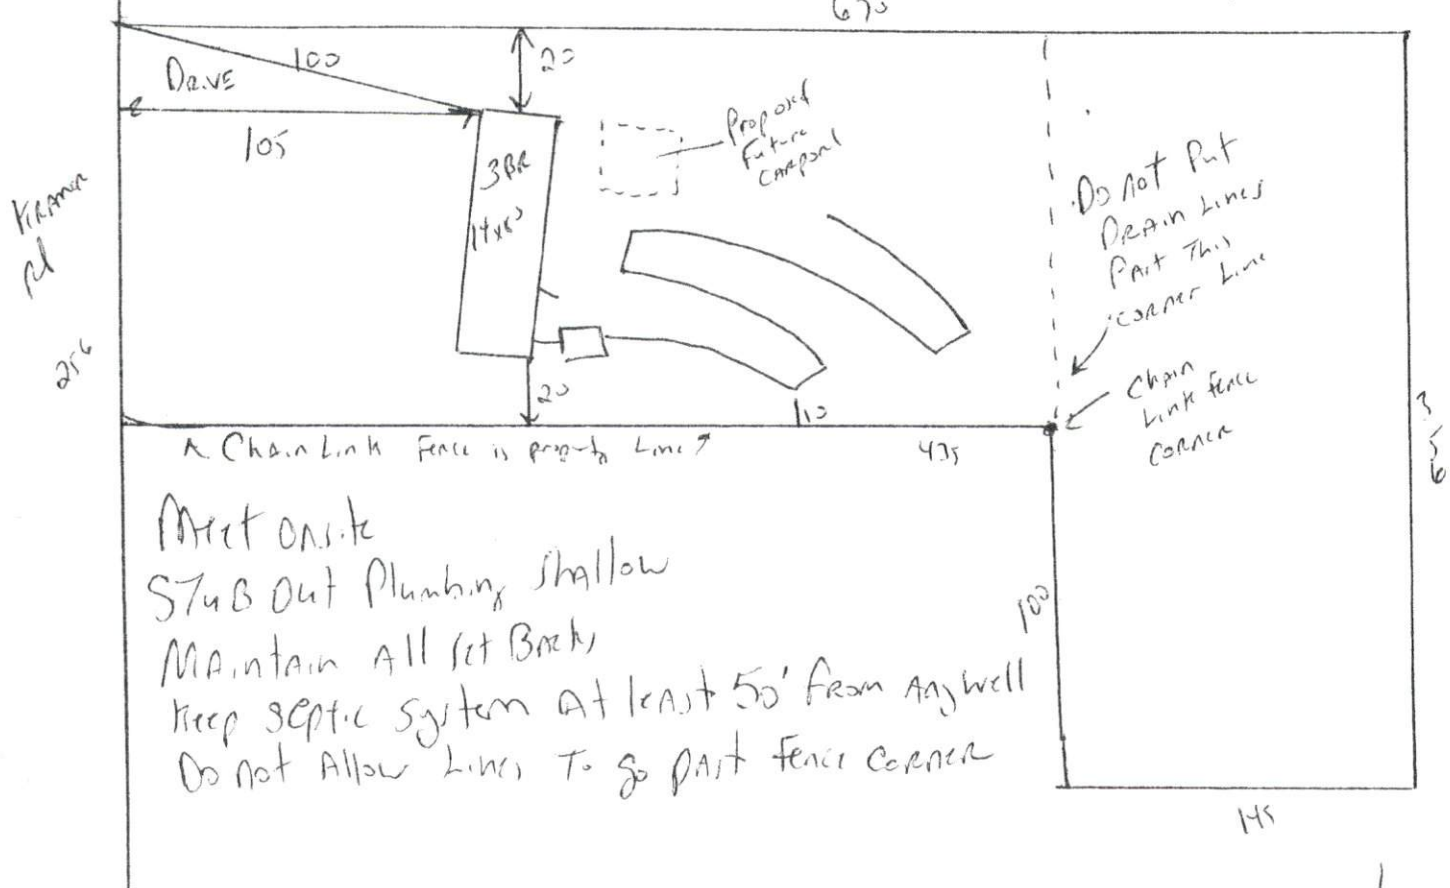 670
100
DRIVE
20
105
3BR
14x80
Proposed
Future
CARPORT
Do Not Put
DRAIN Lines
Past This
CORNER Line
256
rd
20
10
Chain
Link fence
CORNER
356
Chain Link Fence is property Line
435
Meet Onsite
STUB Out Plumbing Shallow
MAintain All Set Backs
Keep Septic System At least 50' from Any Well
Do not Allow Lines To go past Fence CORNER
100
145